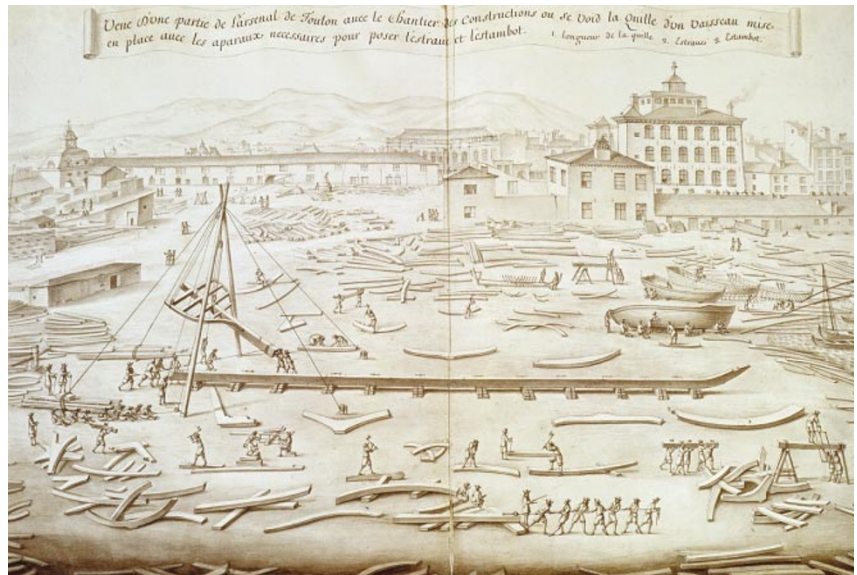 Veue d'une partie de l'arsenal de Toulon avec le Chantier des Constructions ou se Void la Quille d'un Vaisseau mise
en place avec les aparaux necessaires pour poser l'estrave et l'estambot. 1. longueur de la quille 2. Estraves 3. Estambot.